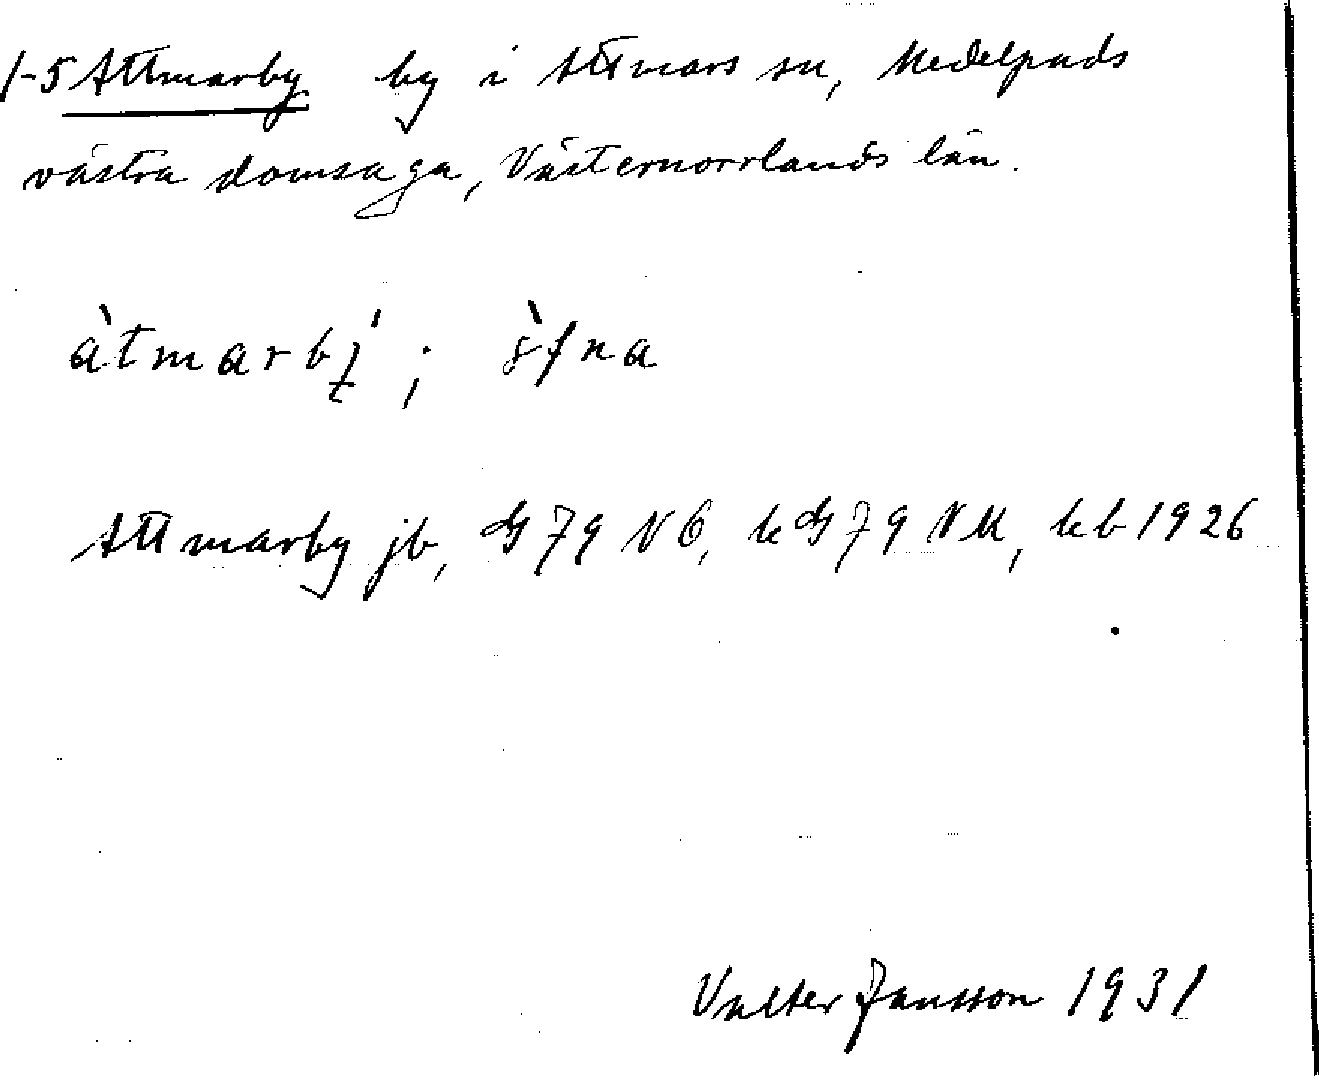 1-5 Attmarby by i Attmars sn, Medelpads
västra domsaga, Västernorrlands län.
àtmarbý;
Attmarby jb, GS 79 NO, kGS 79 NU, kb 1926
Valter Jansson 1931